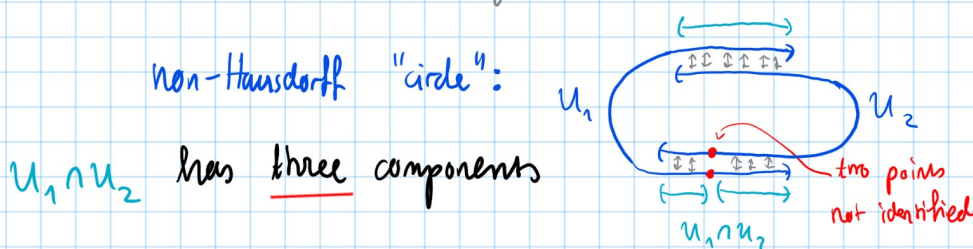 non-Hausdorff "circle":
U₁
U₂
U₁∩U₂ has three components
two points
not identified
U₁∩U₂